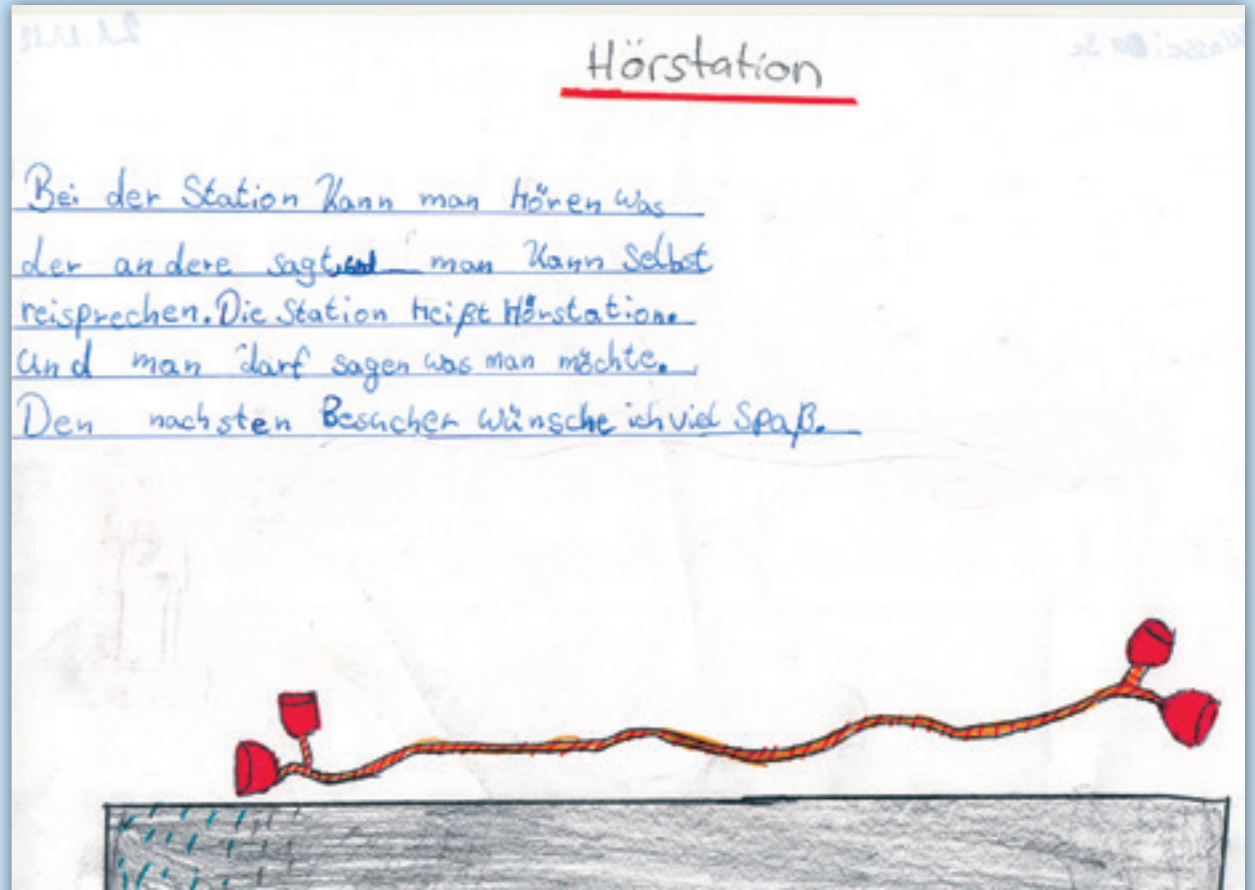 Hörstation
Bei der Station kann man Hören was
der andere sagt und man kann Selbst
reisprechen. Die Station Heißt Hörstation.
und man darf sagen was man möchte.
Den nachsten Besucher wünsche ich viel Spaß.